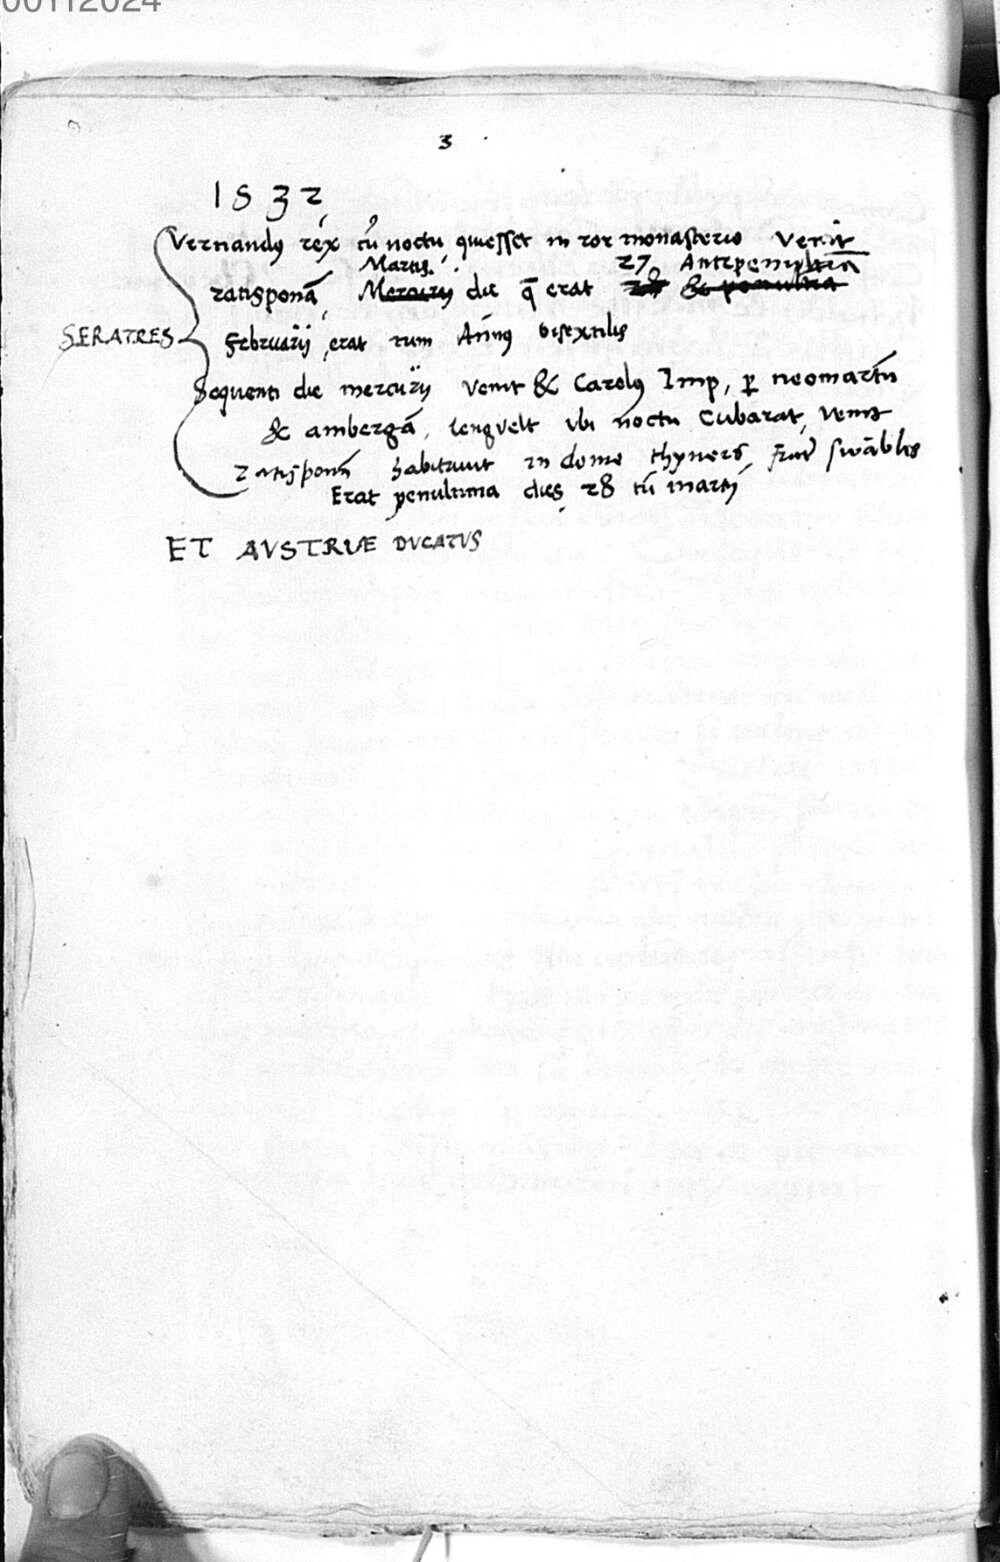 00112024
3
1532
Vernandꝰ rex cū noctu quiesset in ror monasterio venit
Martis. 27 Antepenultīa
ratisponā, Mercurij die q̄ erat 28 & penultīa
Februarij, erat tum Annꝰ bisextilis
SERATRES
Sequenti die mercurij venit & Carolꝰ Imp, ꝑ neomartū
& ambergā, lengvelt ubi noctu cubarat, venit
Ratisponā habitavit in domo thyners
Erat penultima dies 28 martij
ET AVSTRIAE DVCATVS